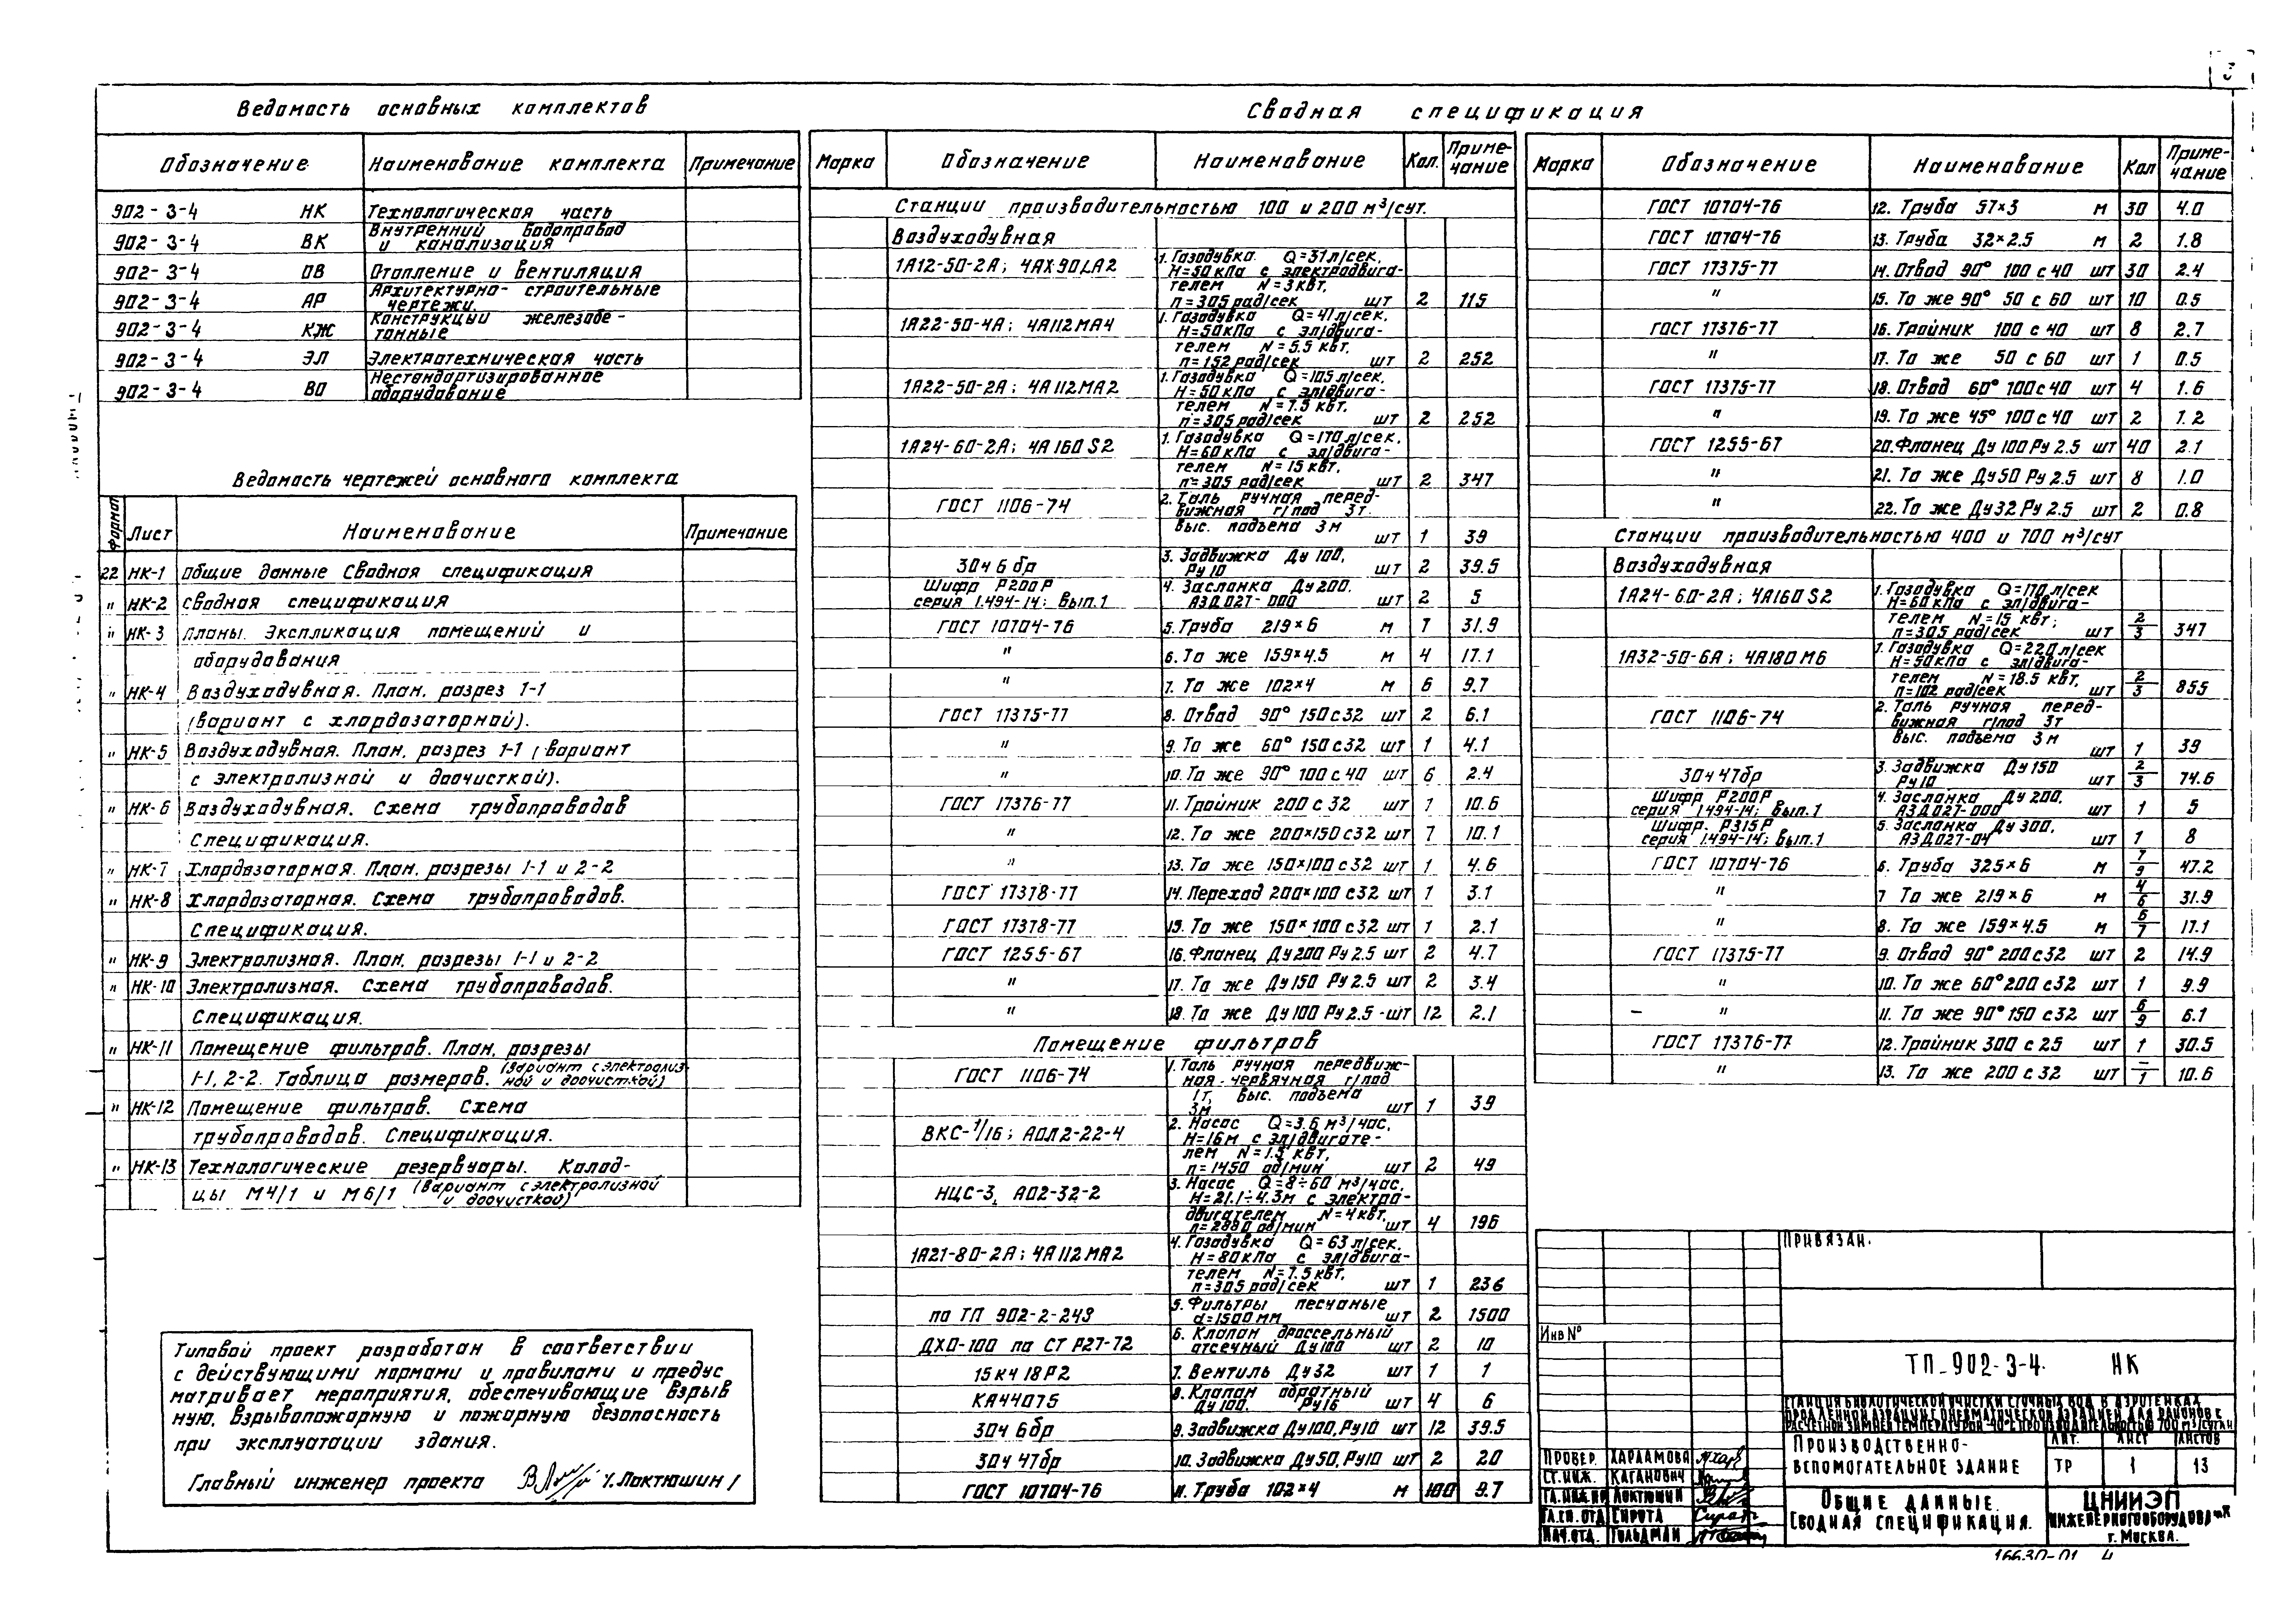 3
Ведомость основных комплектов
Обозначение Наименование комплекта Примечание
902-3-4 НК Технологическая часть
902-3-4 ВК Внутренний водопровод
и канализация
902-3-4 ОВ Отопление и вентиляция
902-3-4 АР Архитектурно-строительные
чертежи.
902-3-4 КЖ Конструкции железобе-
тонные
902-3-4 ЭЛ Электротехническая часть
902-3-4 ВО Нестандартизированное
оборудование
Ведомость чертежей основного комплекта
Формат Лист Наименование Примечание
22 НК-1 Общие данные Сводная спецификация
" НК-2 Сводная спецификация
" НК-3 Планы. Экспликация помещений и
оборудования
" НК-4 Воздуходувная. План, разрез 1-1
(вариант с хлордозаторной).
" НК-5 Воздуходувная. План, разрез 1-1 (вариант
с электролизной и доочисткой).
" НК-6 Воздуходувная. Схема трубопроводов
Спецификация.
" НК-7 Хлордозаторная. План, разрезы 1-1 и 2-2
" НК-8 Хлордозаторная. Схема трубопроводов.
Спецификация.
" НК-9 Электролизная. План, разрезы 1-1 и 2-2
" НК-10 Электролизная. Схема трубопроводов.
Спецификация.
" НК-11 Помещение фильтров. План, разрезы
1-1, 2-2. Таблица размеров. (Вариант с электролиз-
ной и доочисткой)
" НК-12 Помещение фильтров. Схема
трубопроводов. Спецификация.
" НК-13 Технологические резервуары. Колод-
цы М4/1 и М6/1 (Вариант с электролизной
и доочисткой)
Типовой проект разработан в соответствии
с действующими нормами и правилами и предус
матривает мероприятия, обеспечивающие взрыв
ную, взрывопожарную и пожарную безопасность
при эксплуатации здания.
Главный инженер проекта /Локтюшин/
Сводная спецификация
Марка Обозначение Наименование Кол. Приме-
чание
Станции производительностью 100 и 200 м³/сут.
Воздуходувная
1А12-50-2А; 4АХ90LА2 1. Газодувка Q=31 л/сек,
Н=50кПа с электродвига-
телем N=3 кВт,
n=305 рад/сек шт 2 115
1А22-50-4А; 4А112МА4 1. Газодувка Q=41л/сек,
Н=50кПа с эл/двига-
телем N=5.5 кВт,
n=152 рад/сек шт 2 252
1А22-50-2А; 4А112МА2 1. Газодувка Q=105 л/сек,
Н=50 кПа с эл/двига-
телем N=7.5 кВт,
n=305 рад/сек шт 2 252
1А24-60-2А; 4А160S2 1. Газодувка Q=170 л/сек,
Н=60кПа с эл/двига-
телем N=15 кВт,
n=305 рад/сек шт 2 347
ГОСТ 1106-74 2. Таль ручная перед-
вижная г/под 3т.
выс. подъема 3м
шт 1 39
30ч 6 бр 3. Задвижка Ду 100,
Ру 10 шт 2 39.5
Шифр Р200Р 4. Заслонка Ду 200.
серия 1.494-14; Вып.1 АЗД027-000 шт 2 5
ГОСТ 10704-76 5. Труба 219×6 м 7 31.9
" 6. То же 159×4.5 м 4 17.1
" 7. То же 102×4 м 6 9.7
ГОСТ 17375-77 8. Отвод 90° 150с32 шт 2 6.1
" 9. То же 60° 150с32 шт 1 4.1
" 10. То же 90° 100с40 шт 6 2.4
ГОСТ 17376-77 11. Тройник 200с32 шт 1 10.6
" 12. То же 200×150с32 шт 7 10.1
" 13. То же 150×100с32 шт 1 4.6
ГОСТ 17378-77 14. Переход 200×100с32 шт 1 3.1
ГОСТ 17378-77 15. То же 150×100с32 шт 1 2.1
ГОСТ 1255-67 16. Фланец Ду200 Ру2.5 шт 2 4.7
" 17. То же Ду150 Ру2.5 шт 2 3.4
" 18. То же Ду100 Ру2.5 шт 12 2.1
Помещение фильтров
ГОСТ 1106-74 1. Таль ручная передвиж-
ная-червячная г/под
1т, выс. подъема
3м шт 1 39
ВКС-1/16; АОЛ2-22-4 2. Насос Q=3.6 м³/час,
Н=16м с эл/двигате-
лем N=1.5 кВт,
n=1450 об/мин шт 2 49
НЦС-3, АО2-32-2 3. Насос Q=8÷60 м³/час,
Н=21.1÷4.3м с электро-
двигателем N=4кВт,
n=2880 об/мин шт 4 196
1А21-80-2А; 4А112МА2 4. Газодувка Q=63 л/сек,
Н=80кПа с эл/двига-
телем N=7.5 кВт,
n=305рад/сек шт 1 236
по ТП 902-2-243 5. Фильтры песчаные
d=1500мм шт 2 1500
ДХО-100 по СТ Р27-72 6. Клапан дроссельный
отсечный Ду100 шт 2 10
15кч18Р2 7. Вентиль Ду32 шт 1 1
КА44075 8. Клапан обратный
Ду100. Ру16 шт 4 6
30ч 6бр 9. Задвижка Ду100, Ру10 шт 12 39.5
30ч 47бр 10. Задвижка Ду50, Ру10 шт 2 20
ГОСТ 10704-76 11. Труба 102×4 м 100 9.7
Марка Обозначение Наименование Кол Приме-
чание
ГОСТ 10704-76 12. Труба 57×3 м 30 4.0
ГОСТ 10704-76 13. Труба 32×2.5 м 2 1.8
ГОСТ 17375-77 14. Отвод 90° 100с40 шт 30 2.4
" 15. То же 90° 50с60 шт 10 0.5
ГОСТ 17376-77 16. Тройник 100с40 шт 8 2.7
" 17. То же 50с60 шт 1 0.5
ГОСТ 17375-77 18. Отвод 60° 100с40 шт 4 1.6
" 19. То же 45° 100с40 шт 2 1.2
ГОСТ 1255-67 20. Фланец Ду100 Ру2.5 шт 40 2.1
" 21. То же Ду50 Ру2.5 шт 8 1.0
" 22. То же Ду32 Ру2.5 шт 2 0.8
Станции производительностью 400 и 700 м³/сут
Воздуходувная
1А24-60-2А; 4А160S2 1. Газодувка Q=170 л/сек
Н=60кПа с эл/двига-
телем N=15 кВт;
n=305 рад/сек шт 2/3 347
1А32-50-6А; 4А180М6 1. Газодувка Q=220л/сек
Н=50кПа с эл/двига-
телем N=18.5 кВт,
n=102 рад/сек шт 2/3 855
ГОСТ 1106-74 2. Таль ручная перед-
вижная г/под 3т
выс. подъема 3м
шт 1 39
30ч 47бр 3. Задвижка Ду150
Ру10 шт 2/3 74.6
Шифр Р200Р 4. Заслонка Ду200,
серия 1.494-14; Вып.1 АЗД027-000 шт 1 5
Шифр. Р315Р 5. Заслонка Ду300,
серия 1.494-14; Вып.1 АЗД027-04 шт 1 8
ГОСТ 10704-76 6. Труба 325×6 м 7/9 47.2
" 7 То же 219×6 м 4/6 31.9
" 8. То же 159×4.5 м 6/7 17.1
ГОСТ 17375-77 9. Отвод 90° 200с32 шт 2 14.9
" 10. То же 60° 200с32 шт 1 9.9
" 11. То же 90° 150с32 шт 6/9 6.1
ГОСТ 17376-77 12. Тройник 300с25 шт 1 30.5
" 13. То же 200с32 шт -/1 10.6
Привязан.
Инв №
ТП-902-3-4. НК
Станция биологической очистки сточных вод в аэротенках
продленной аэрации с пневматической аэрацией для районов с
расчетной зимней температурой -40°С производительностью 700 м³/сутки
Производственно-
вспомогательное здание
Лит. Лист Листов
ТР 1 13
Общие данные.
Сводная спецификация.
ЦНИИЭП
инженерного оборудования
г. Москва.
Провер. Хараамова
Ст.инж. Каганович
Гл.инж.пр Локтюшин
Гл.сп.отд Сирота
Нач.отд. Гольдман
16630-01 4